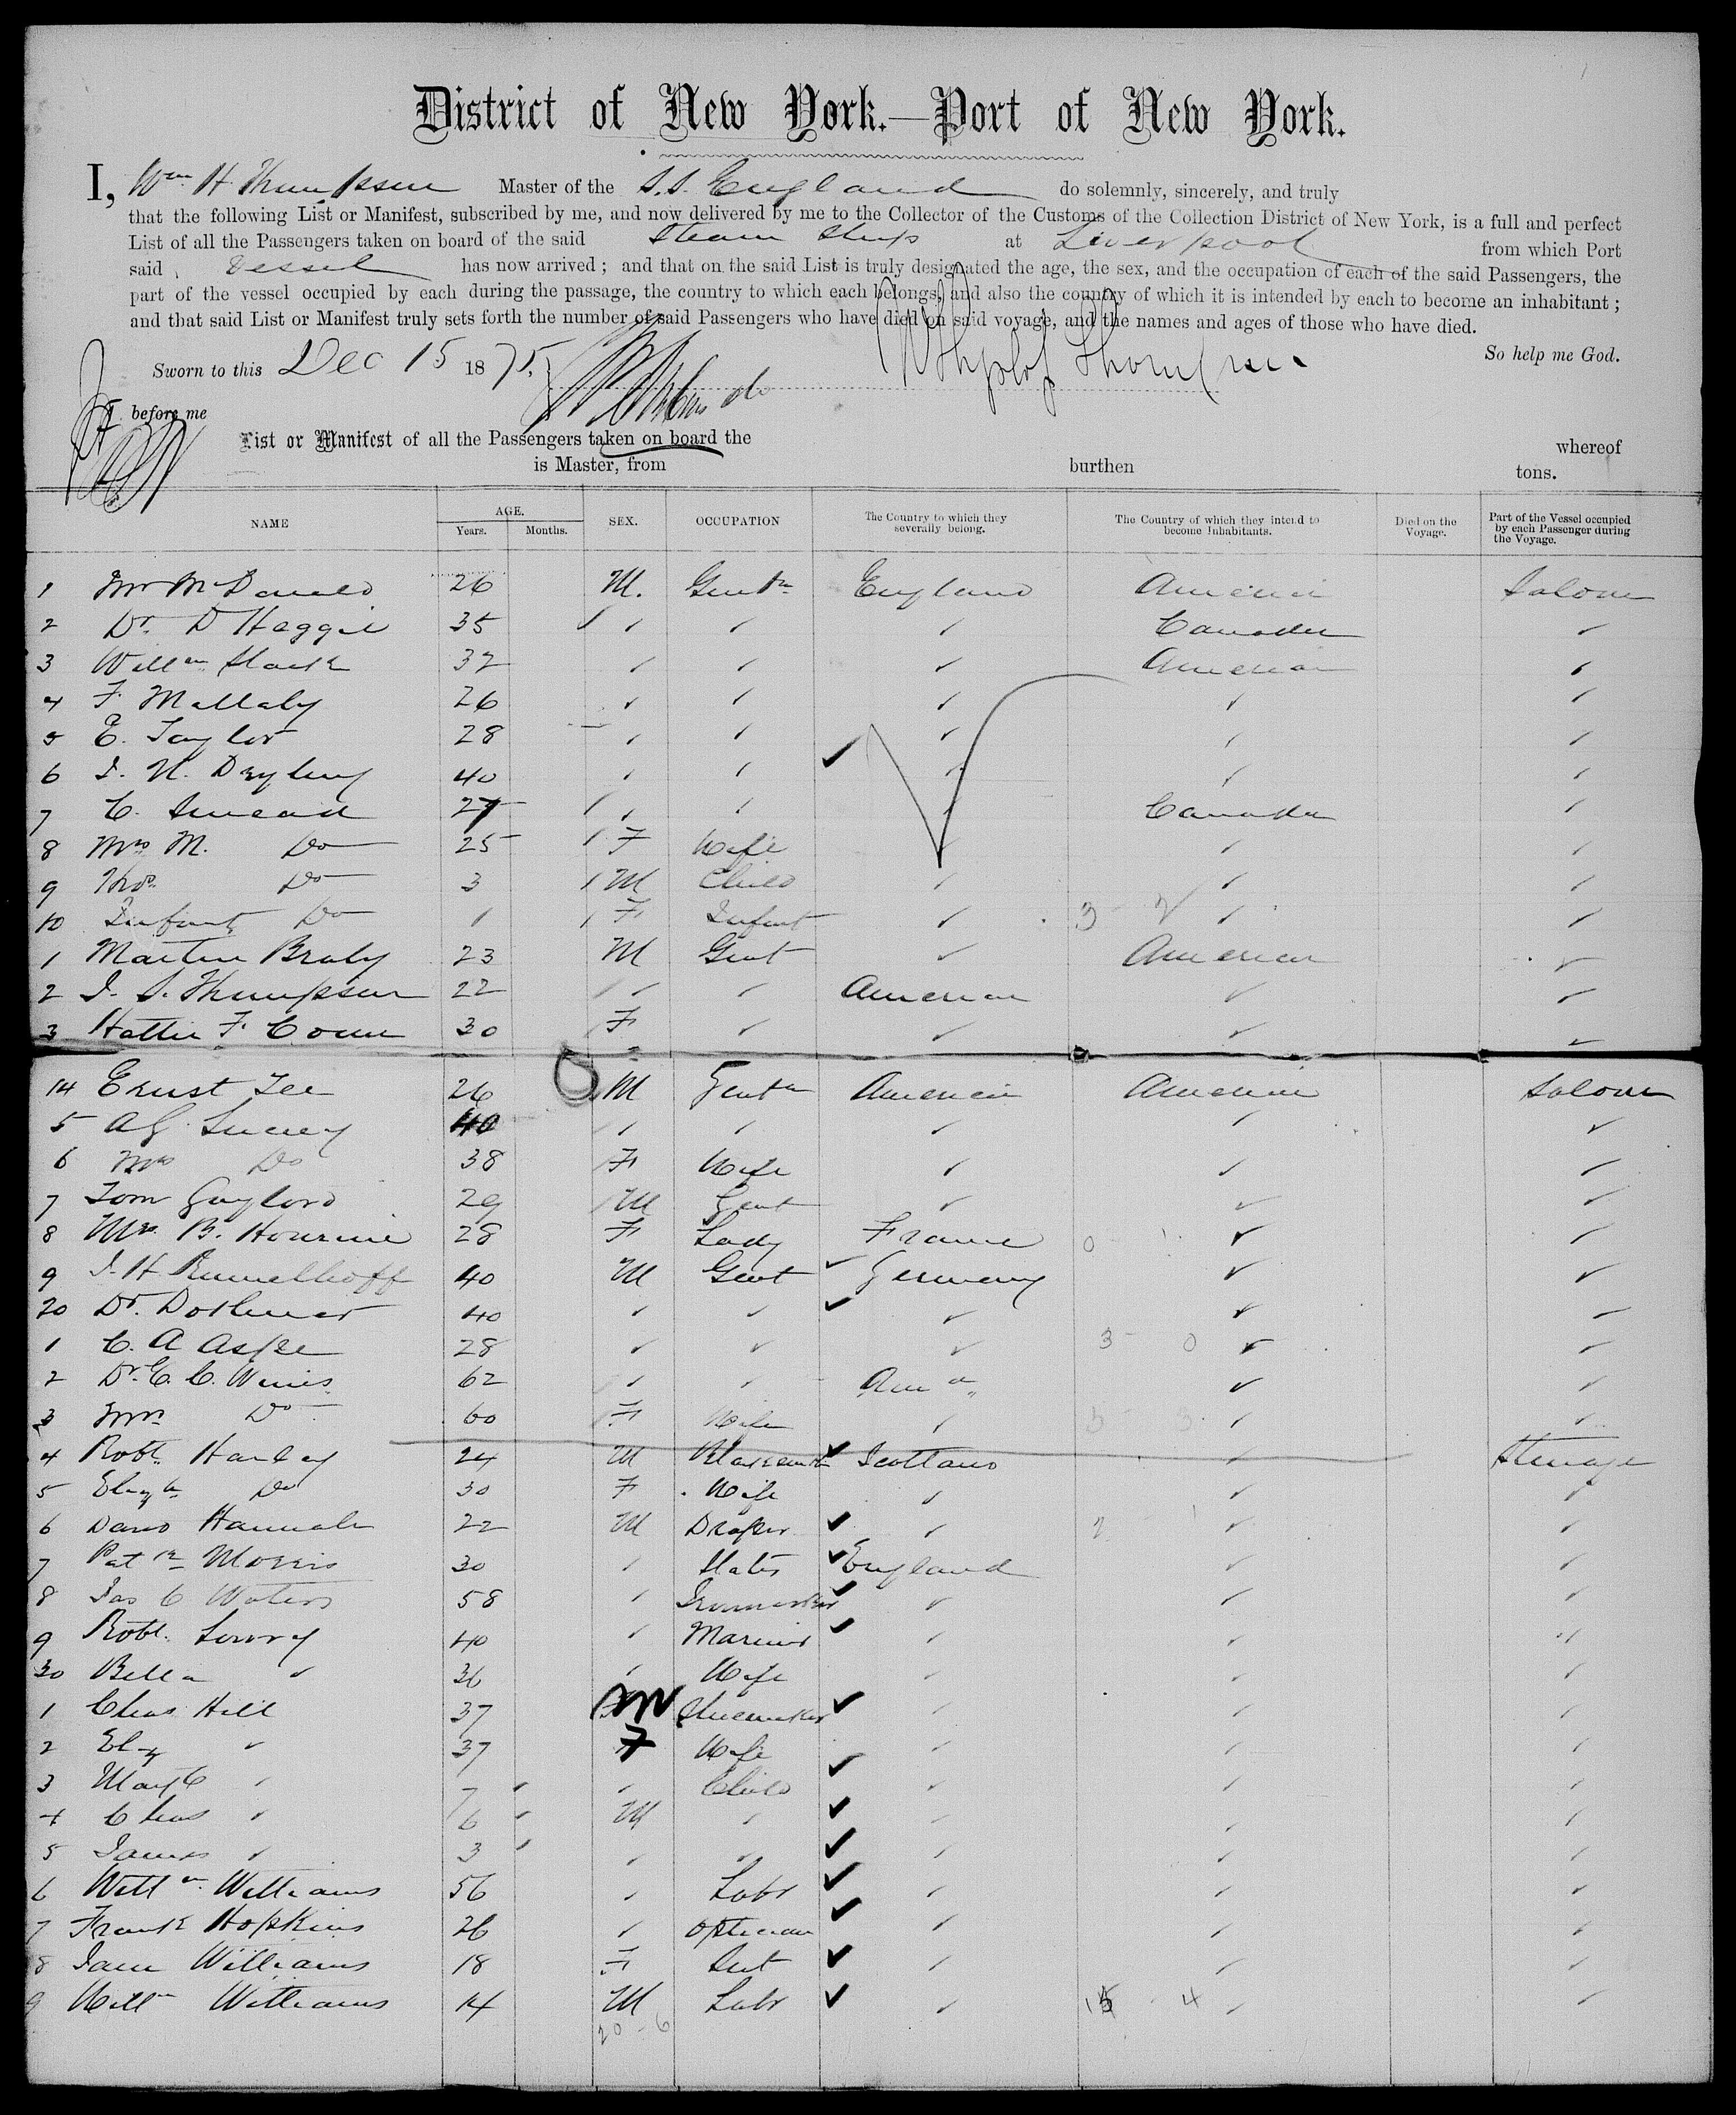 District of New York.—Port of New York.
I, Wm H Thompson Master of the S.S. England do solemnly, sincerely, and truly
that the following List or Manifest, subscribed by me, and now delivered by me to the Collector of the Customs of the Collection District of New York, is a full and perfect
List of all the Passengers taken on board of the said Steam Ship at Liverpool from which Port
said Vessel has now arrived; and that on the said List is truly designated the age, the sex, and the occupation of each of the said Passengers, the
part of the vessel occupied by each during the passage, the country to which each belongs, and also the country of which it is intended by each to become an inhabitant;
and that said List or Manifest truly sets forth the number of said Passengers who have died on said voyage, and the names and ages of those who have died.
So help me God.
Sworn to this Dec 15 1875 Thompson
before me
List or Manifest of all the Passengers taken on board the whereof
is Master, from burthen tons.
NAME AGE. Years. Months. SEX. OCCUPATION The Country to which they severally belong. The Country of which they intend to become Inhabitants. Died on the Voyage. Part of the Vessel occupied by each Passenger during the Voyage.
1 Mr McDonald 26 M. Gentn England America Saloon
2 Dr. D Haggie 35 ✓ ✓ ✓ Canada ✓
3 Willm Slack 32 ✓ ✓ ✓ American ✓
4 F. Mallaby 26 ✓ ✓ ✓ ✓ ✓
5 E. Taylor 28 ✓ ✓ ✓ ✓ ✓
6 40 ✓ ✓ ✓ ✓ ✓
7 C. Smead 27 ✓ ✓ ✓ Canada ✓
8 Mrs M. Do 25 F Wife ✓ ✓ ✓
9 Thos. Do 3 M Child ✓ ✓ ✓
10 Infant Do 1 F Infant ✓ ✓ ✓
1 Martin Braby 23 M Gent ✓ American ✓
2 J. S. Thompson 22 ✓ ✓ American ✓ ✓
3 Hattie F. Coun 30 F ✓ ✓ ✓ ✓
14 Ernst Lee 26 M Gentn American American Saloon
5 40 ✓ ✓ ✓ ✓ ✓
6 Mrs Do 38 F Wife ✓ ✓ ✓
7 Tom Gaylord 29 M Gent ✓ ✓ ✓
8 Mrs. B. Hourine 28 F Lady France ✓ ✓
9 J. H Rumelhoff 40 M Gent Germany ✓ ✓
20 Dr. 40 ✓ ✓ ✓ ✓ ✓
1 C. A 28 ✓ ✓ ✓ ✓ ✓
2 Dr. C. C. Wines 62 ✓ ✓ Ama ✓ ✓
3 Mrs Do 60 F Wife ✓ ✓ ✓
4 Robt. Hanley 24 M Blacksmith Scotland ✓ Steerage
5 Elizbh Do 30 F Wife ✓ ✓ ✓
6 David Hannah 22 M Draper ✓ ✓ ✓
7 Patrk Morris 30 ✓ Slater England ✓ ✓
8 Jas C Waters 58 ✓ ✓ ✓ ✓
9 Robt. Lowry 40 ✓ Mariner ✓ ✓ ✓
30 Bella " 36 ✓ Wife ✓ ✓ ✓
1 Chas Hill 37 M Shoemaker ✓ ✓ ✓
2 Eliz " 37 F Wife ✓ ✓ ✓
3 Mary C " 7 ✓ Child ✓ ✓ ✓
4 Chas " 6 M ✓ ✓ ✓ ✓
5 James " 3 ✓ ✓ ✓ ✓ ✓
6 Willm Williams 56 ✓ Labr ✓ ✓ ✓
7 Frank Hopkins 26 ✓ Optician ✓ ✓ ✓
8 Jane Williams 18 F ✓ ✓ ✓
9 Willm Williams 14 M Labr ✓ ✓ ✓
20 - 6